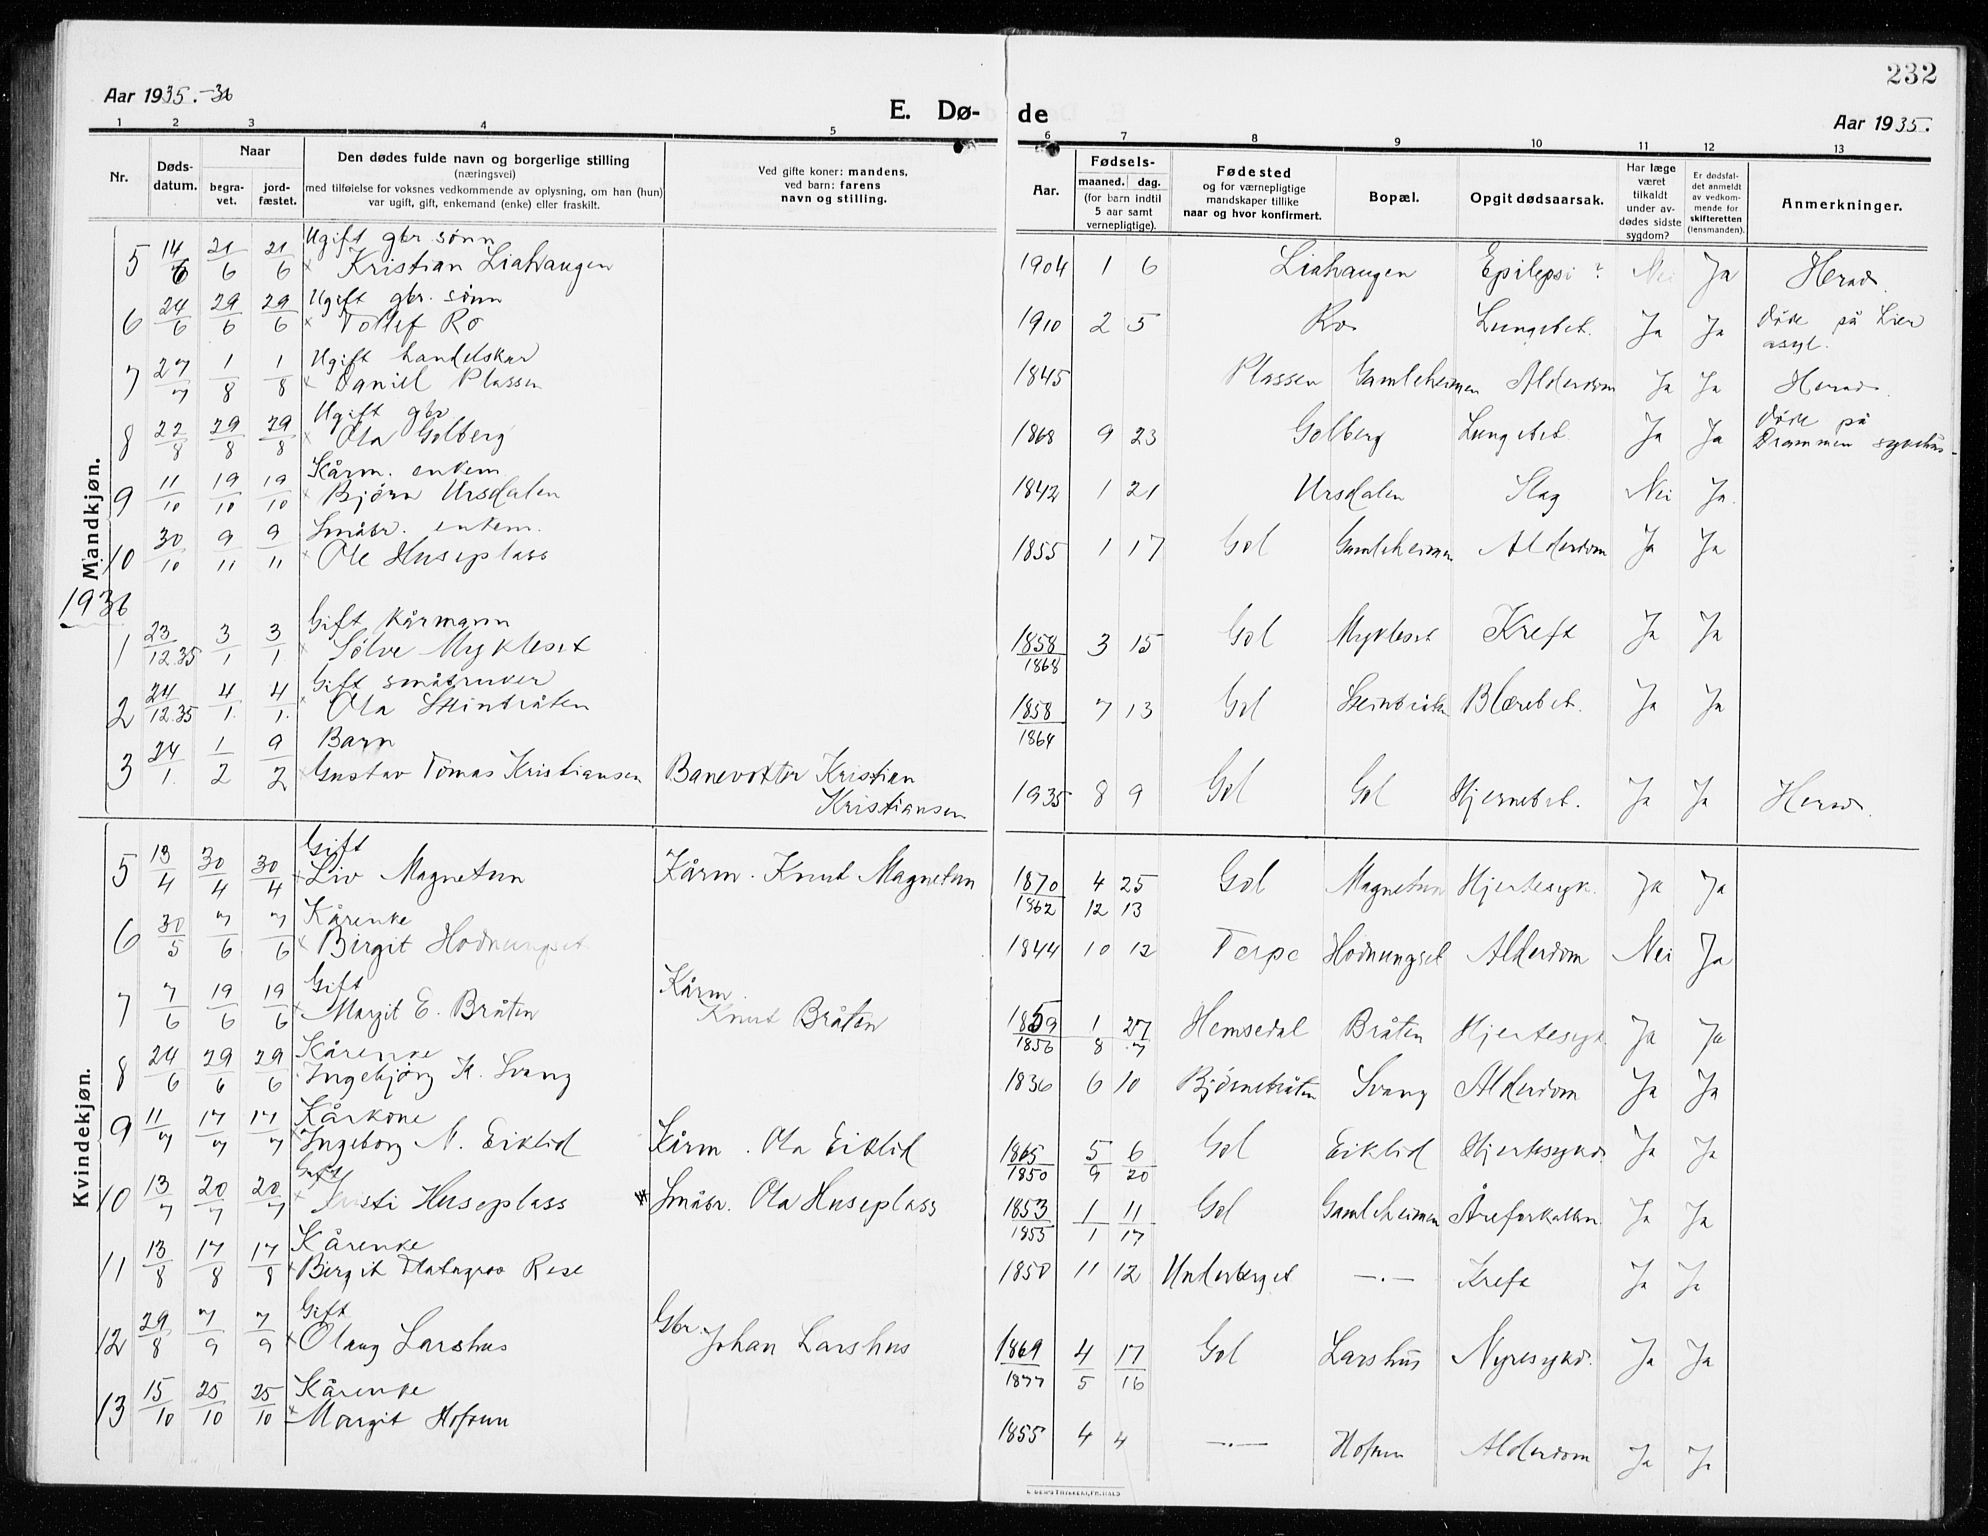 232
Aar 1935.-36
E. Dø-
de
Aar 1935.
1 2 3 4 5 6 7 8 9 10 11 12 13
Nr.
Døds-
datum.
Naar
begra-
vet.
jord-
fæstet.
Den dødes fulde navn og borgerlige stilling
(næringsvei)
med tilføielse for voksnes vedkommende av oplysning, om han (hun)
var ugift, gift, enkemand (enke) eller fraskilt.
Ved gifte koner: mandens,
ved barn: farens
navn og stilling.
Aar.
Fødsels-
maaned. dag.
(for barn indtil
5 aar samt
vernepligtige).
Fødested
og for værnepligtige
mandskaper tillike
naar og hvor konfirmert.
Bopæl.
Opgit dødsaarsak.
Har læge
været
tilkaldt
under av-
dødes sidste
sygdom?
Er dødsfal-
det anmeldt
av vedkom-
mende for
skifteretten
(lensmanden).
Anmerkninger.
Mandkjøn.
Ugift gbr. sønn
5 14/6 21/6 21/6 × Kristian Liahaugen 1904 1 6 Liahaugen Epilepsi ? Nei Ja Herad.
Ugift gbr. sønn
6 24/6 29/6 29/6 × Tollef Ro 1910 2 5 Ro Lungebet. Ja Ja Døde på Lier
asyl.
Ugift handelskar
7 27/7 1/8 1/8 × Daniel Plassen 1845 Plassen Gamleheimen Alderdom Ja Ja Herad.
Ugift gbr
8 22/8 29/8 29/8 × Ola Golberg 1868 9 23 Golberg Lungebet. Ja Ja Døde på
Drammen sykehus
Kårm. enkem.
9 11/10 19/10 19/10 × Bjørn Ursdalen 1842 1 21 Ursdalen Slag Nei Ja.
Småbr. enkem.
10 30/10 9/11 9/11 × Ole Huseplass 1855 1 17 Gol Gamleheimen Alderdom Ja Ja
1936
Gift kårmann
1 23/12.35 3/1 3/1. × Sølve Mykleset 1858/1868 3 15 Gol Mykleset Kreft Ja Ja
Gift småbruker
2 24/12.35 4/1. 4/1. × Ola Steinbråten 1858/1864 7 13 Gol Steinbråten Blærebet. Ja Ja
Barn
3 24/1. 1/2 9/2 × Gustav Tomas Kristiansen Banevokter Kristian
Kristiansen 1935 8 9 Gol Gol Hjernebet. Ja Ja Herad.
Kvindekjøn.
Gift
5 13/4 30/4 30/4 × Liv Magnetun Kårm. Knut Magnetun 1870/1862 4/12 25/13 Gol Magnetun Hjertesyk. Ja Ja
Kårenke
6 30/5 7/6 7/6 × Birgit Hodnungset 1844 10 12 Torpo Hodnungset Alderdom Nei Ja
Gift Kårm.
7 7/6 19/6 19/6 × Margit E. Bråten Knut Bråten 1859/1856 1/8 27/7 Hemsedal Bråten Hjertesyk. Ja Ja
Kårenke
8 24/6 29/6 29/6 Ingebjørg K. Svang 1836 6 10 Bjørnebråten Svang Alderdom Ja Ja
Kårkone
9 11/7 17/7 17/7 × Ingeborg N. Eiklid Kårm. Ola Eiklid 1865/1850 5/9 6/20 Gol Eiklid Hjertesykd. Ja Ja
Gift
10 13/7 20/7 20/7 × Kristi Huseplass × Småbr. Ola Huseplass 1853/1855 1/1 11/17 Gol Gamleheimen Åreforkalkn. Ja Ja
Kårenke
11 13/8 17/8 17/8 × Birgit Rese 1850 11 12 Underberget —.— Kreft Ja Ja
Gift Gbr.
12 29/8 7/9 7/9 × Olaug Larshus Johan Larshus 1869/1877 4/5 17/16 Gol Larshus Nyresykd. Ja Ja
Kårenke
13 15/10 25/10 25/10 × Margit Hofsun 1855 4 4 —.— Hofsun Alderdom Ja Ja